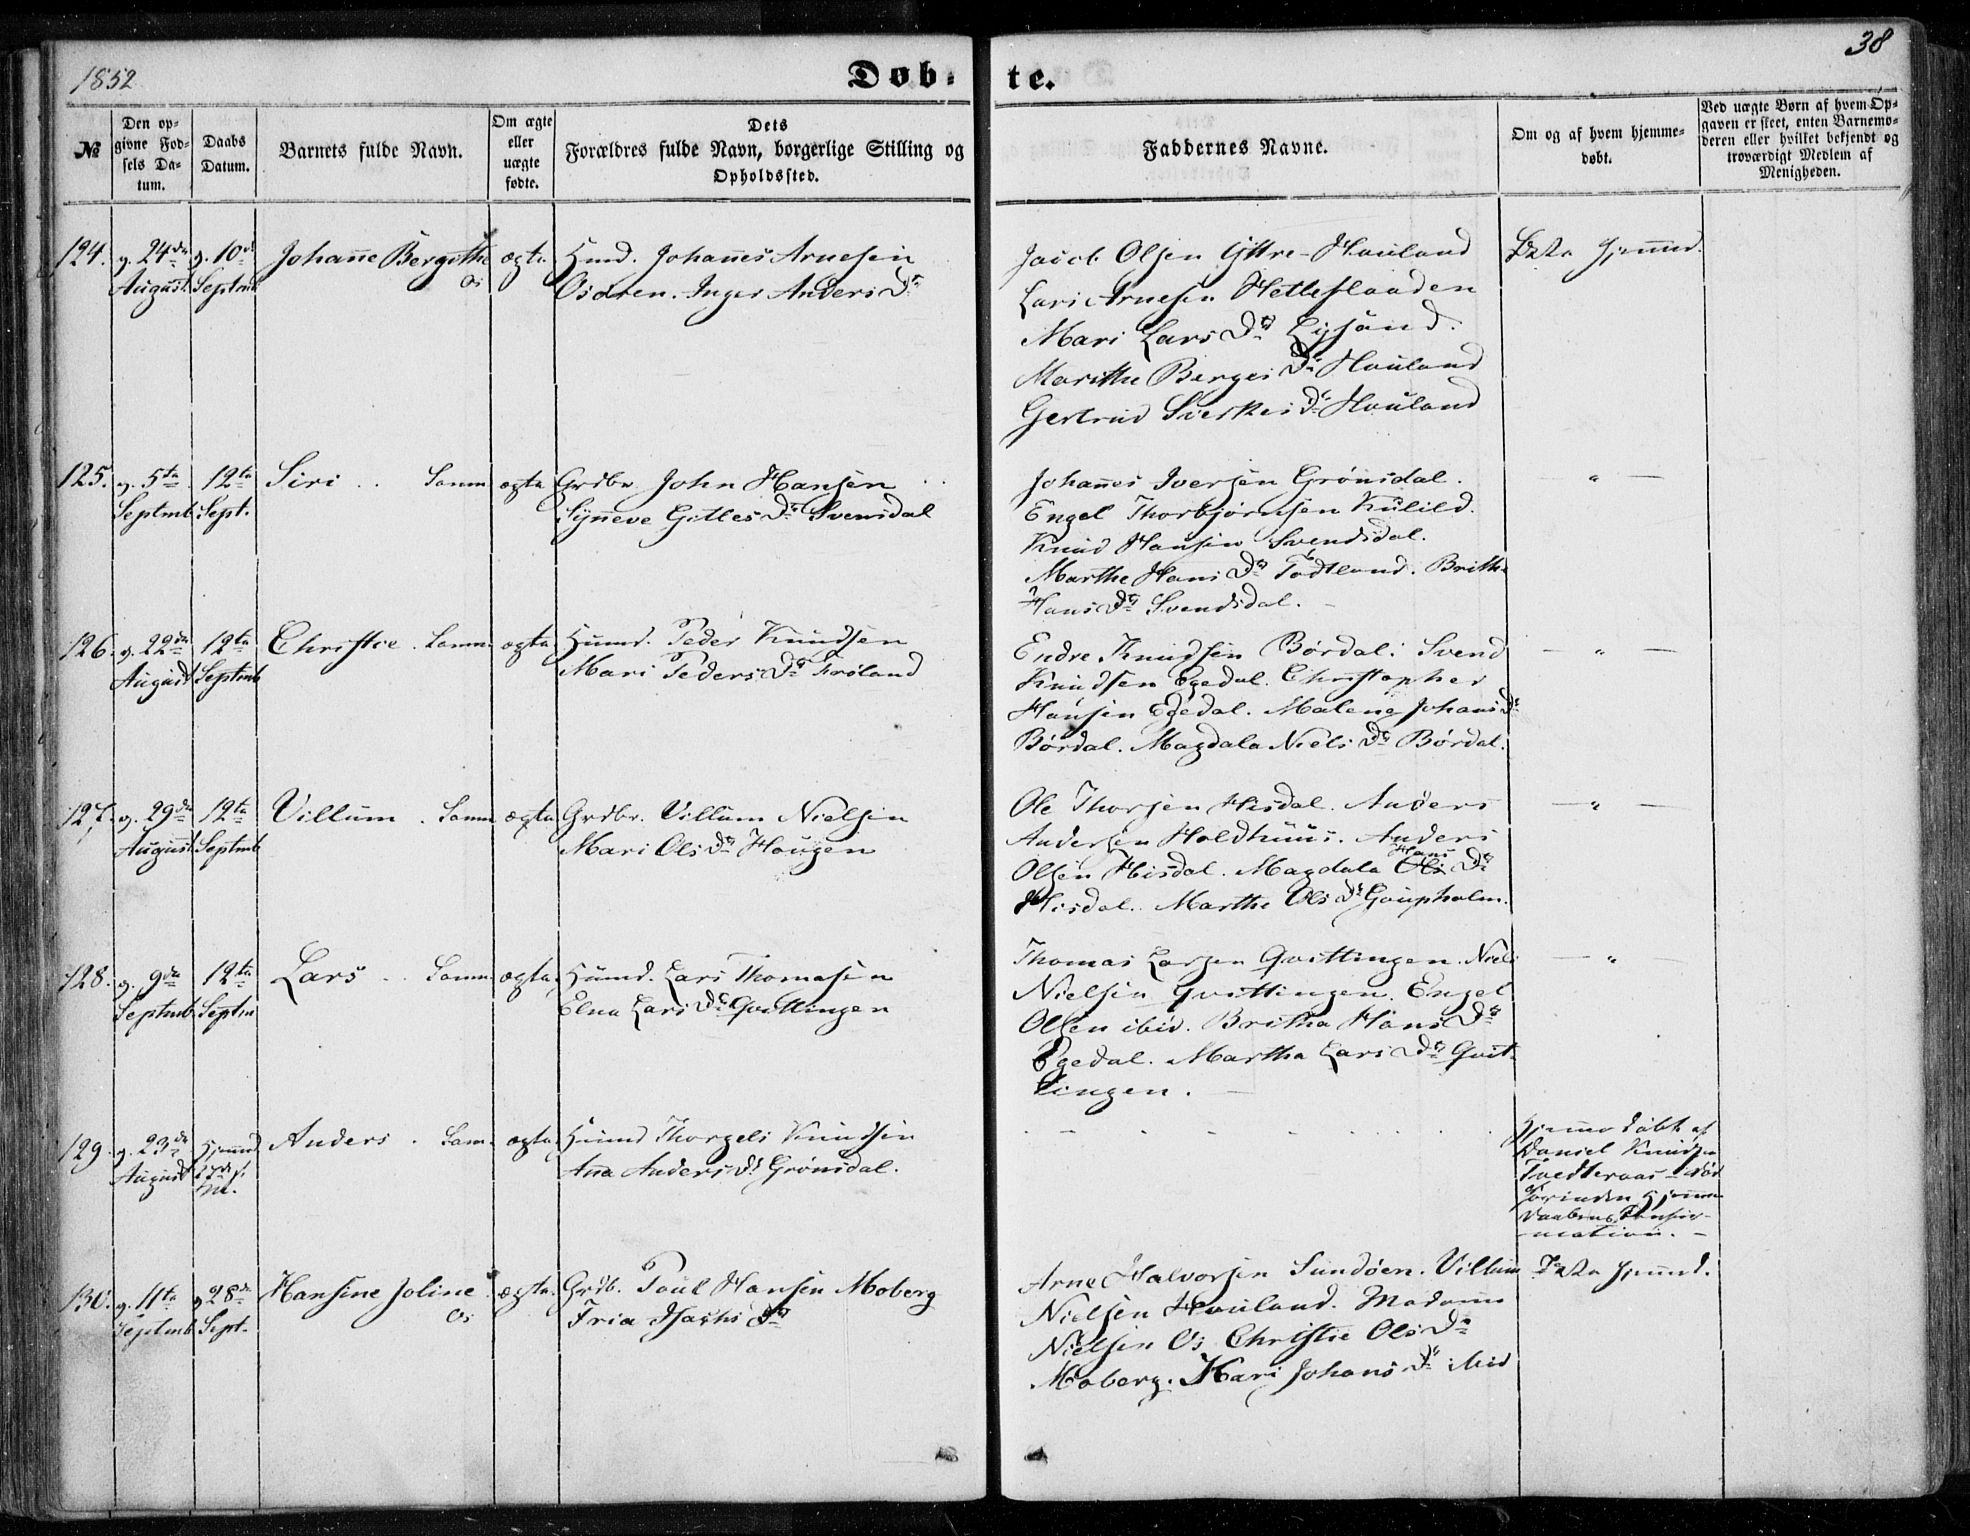 1852.
Døb-
te.
38
No
Den op-
givne Fød-
sels Da-
tum.
Daabs
Datum.
Barnets fulde Navn.
Om ægte
eller
uægte
fødte.
Dets
Forældres fulde Navn, borgerlige Stilling og
Opholdssted.
Faddernes Navne.
Om og af hvem hjemme-
døbt.
Ved uægte Børn af hvem Op-
gaven er skeet, enten Barnemo-
deren eller hvilket bekjendt og
troværdigt Medlem af
Menigheden.
124. g. 24de
August
g. 10de
Septmb
Johanne Bergithe
Os
ægte
Huusmd. Johannes Arnesen
Osøren. Inger Anders Dr
Jacob Olsen Yttre-Hauland
Lars Arnesen Hetleflaaden
Mari Lars Dr Lysand.
Marithe Berges Dr Hauland
Gertrud Sverkes Dr Hauland
125. g. 5te
Septmb
12te
Sept.
Siri . . Samm
ægte
Grdbr John Hansen
Synneve Gitles Dr Svensdal
Johannes Iversen Grønsdal.
Engel Thorbjørnsen Kulild.
Knud Hansen Svendsdal.
Marthe Hans Dr Tødtland. Brithe
Hans Dr Svendsdal.
— " —
126. g. 22de
August
12te
Septmb
Christie . Samm
ægte
Huusmd. Peder Knudsen
Mari Peders Dr Frøland
Endre Knudsen Børdal. Svend
Knudsen Egedal. Christopher
Hansen Egedal. Malene Johans Dr
Børdal. Magdala Niels Dr Børdal.
— " —
127. g. 29de
August
12te
Septmb
Villum . Samm
ægte
Grdbr. Villum Nielsen
Mari Ols Dr Haugen
Ole Thorsen Hisdal. Anders
Andersen Holdhuus. Anders
Olsen Hisdal. Magdala Hans Dr
Hisdal. Marthe Ols Dr Gaupholm.
— " —
128. g. 9de
Septmb
12te
Septm
Lars . . Samm
ægte
Huusmd. Lars Thomasen
Elna Lars Dr Qvittingen
Thomas Larsen Qvittingen. Niels
Nielsen Qvittingen. Engel
Olsen ibid. Britha Hans Dr
Egedal. Martha Lars Dr Qvit-
tingen.
— " —
129. g. 23de
August
Hjemmd
Anders . Sam.
ægte
Huusmd Thorgels Knudsen
Anna Anders Dr Grønsdal.
Hjemmedøbt af
Daniel Knudsen
Tvedteraas - død
førinden Hjemme-
daabens Confir-
mation. -
130. g. 11te
Septmb
g 28de
Sept.
Hansine Joline
Os
ægte.
Grdb. Poul Hansen Moberg
Isachs Dr
Arne Halvorsen Sundøen. Villum
Nielsen Hauland. Madame
Nielsen Os Christie Ols Dr
Moberg. Kari Johans Dr ibid